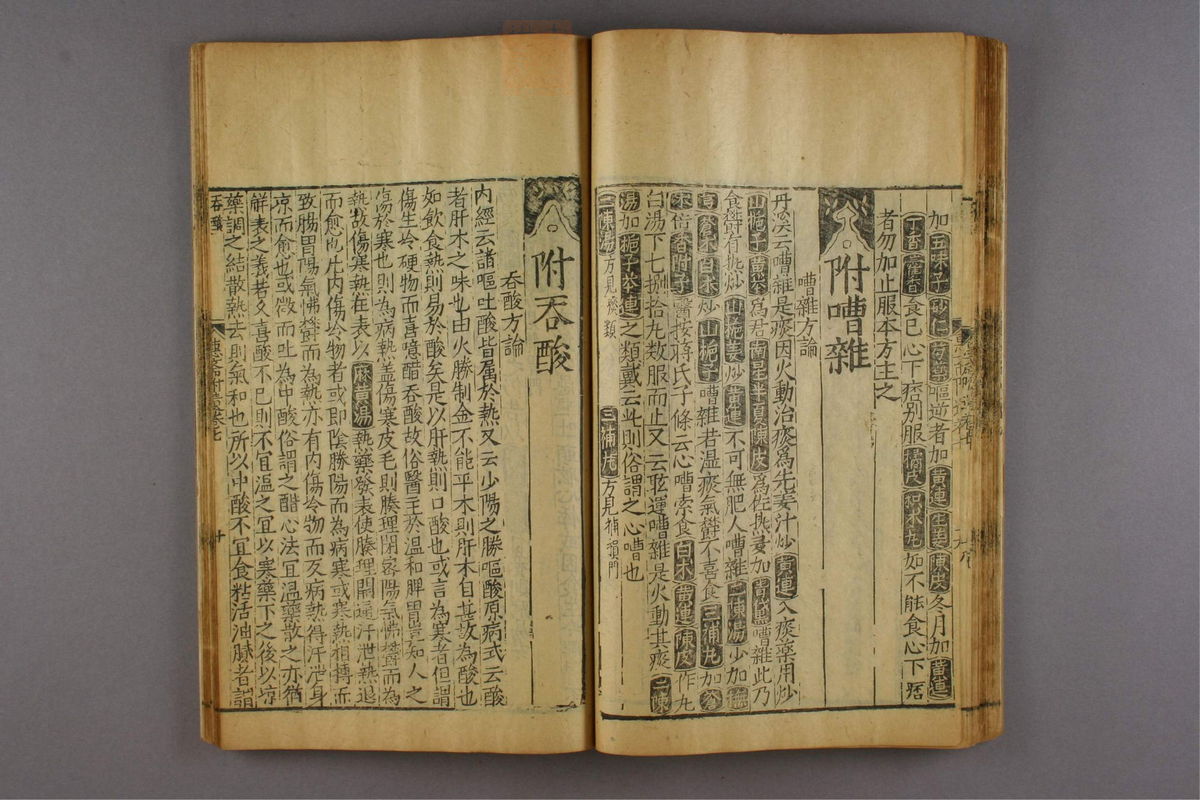 加五味子砂仁芍藥嘔逆者加黄連生姜陳皮冬月加黄連
丁香藿香食已心下痞别服橘皮枳朮丸如不能食心下痞
者勿加止服本方主之
附嘈雜
嘈雜方論
丹溪云嘈雜是痰因火動治痰為先姜汁炒黄連入痰藥用炒
山梔子黄芩為君南星半夏陳皮為佐熱多加青黛嘈雜此乃
食鬱有熱炒山梔姜炒黄連不可無肥人嘈雜二陳湯少加撫
芎蒼朮白朮炒山梔子嘈雜若温痰氣鬱不喜食三補丸加蒼
朮倍香附子醫按蔣氏子條云心嘈索食白朮黄連陳皮作丸
白湯下七捌拾丸数服而止又云眩運嘈雜是火動其痰二陳
湯加梔子芩連之類戴云此則俗謂之心嘈也
二陳湯方見痰類 三補丸方見補損門
附吞酸
吞酸方論
内經云諸嘔吐酸皆属於熱又云少陽之勝嘔酸原病式云酸
者肝木之味也由火勝制金不能平木則肝木自甚故為酸也
如飲食熱則易於酸矣是以肝熱則口酸也或言為寒者但謂
傷生冷硬物而喜噫醋吞酸故俗醫主於温和脾胃豈知人之
傷於寒也則為病熱盖傷寒皮毛則腠理閉密陽氣怫鬱而為
熱故傷寒熱在表以麻黄湯熱藥發表使腠理開通汗泄熱退
而愈也凡内傷冷物者或即陰勝陽而為病寒或寒熱相搏而
致腸胃陽氣怫鬱而為熱亦有内傷冷物而反病熱得汗泄身
凉而愈也或微而吐為中酸俗謂之醋心法宜温藥散之亦猶
解表之義若久喜酸不已則不宜温之宜以寒藥下之後以凉
藥調之結散熱去則氣和也所以中酸不宜食粘活油膩者謂
吞酸
卷七
十